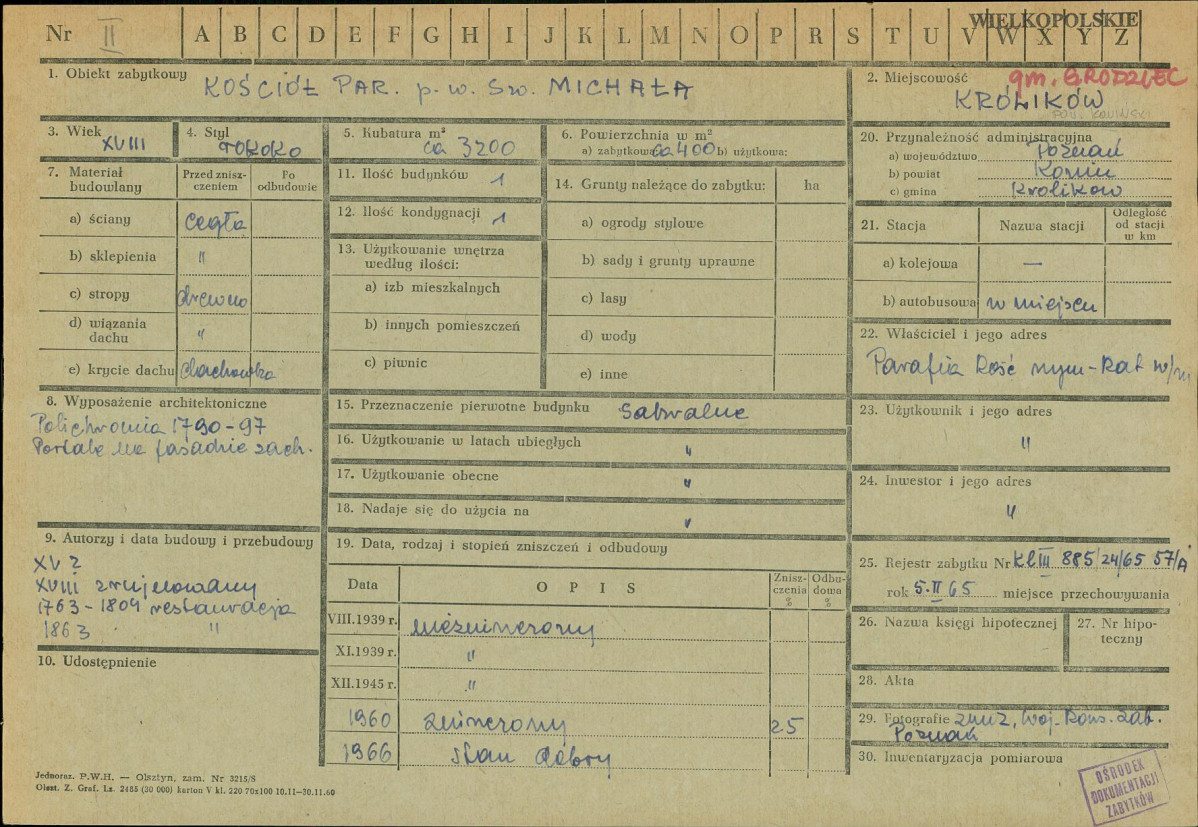 Nr II A B C D E F G H I J K L M N O P R S T U V W X Y Z
WIELKOPOLSKIE
1. Obiekt zabytkowy KOŚCIÓŁ PAR. p. w. Św. MICHAŁA
2. Miejscowość gm. GRODZIEC
KRÓLIKÓW
POW. KONIŃSKI
3. Wiek XVIII
4. Styl rokoko
5. Kubatura m³ ca 3200
6. Powierzchnia w m²
a) zabytkowa ca 400 b) użytkowa:
7. Materiał budowlany
Przed zniszczeniem
Po odbudowie
a) ściany cegła
b) sklepienia "
c) stropy drewno
d) wiązania dachu "
e) krycie dachu dachówka
8. Wyposażenie architektoniczne
Polichromia 1790-97
Portale na fasadzie zach.
9. Autorzy i data budowy i przebudowy
XV ?
XVIII zrujnowany
1763-1804 restauracja
1863 "
10. Udostępnienie
11. Ilość budynków 1
12. Ilość kondygnacji 1
13. Użytkowanie wnętrza
według ilości:
a) izb mieszkalnych
b) innych pomieszczeń
c) piwnic
14. Grunty należące do zabytku: ha
a) ogrody stylowe
b) sady i grunty uprawne
c) lasy
d) wody
e) inne
15. Przeznaczenie pierwotne budynku Sakralne
16. Użytkowanie w latach ubiegłych "
17. Użytkowanie obecne "
18. Nadaje się do użycia na "
19. Data, rodzaj i stopień zniszczeń i odbudowy
Data OPIS Zniszczenia % Odbudowa %
VIII.1939 r. niezniszczony
XI.1939 r. "
XII.1945 r. "
1960 zniszczony 25
1966 stan dobry
20. Przynależność administracyjna
a) województwo Poznań
b) powiat Konin
c) gmina Królików
21. Stacja Nazwa stacji Odległość od stacji w km
a) kolejowa —
b) autobusowa w miejscu
22. Właściciel i jego adres
Parafia Kość rzym-Kat w/m
23. Użytkownik i jego adres
"
24. Inwestor i jego adres
"
25. Rejestr zabytku Nr Kl III 885/24/65 57/A
rok 5.II 65 miejsce przechowywania
26. Nazwa księgi hipotecznej
27. Nr hipoteczny
28. Akta
29. Fotografie Woj. Kons. Zab.
Poznań
30. Inwentaryzacja pomiarowa
OŚRODEK
DOKUMENTACJI
ZABYTKÓW
Jednoraz. P.W.H. — Olsztyn, zam. Nr 3215/S
Olszt. Z. Graf. Lz. 2485 (30 000) karton V kl. 220 70x100 10.11—30.11.60